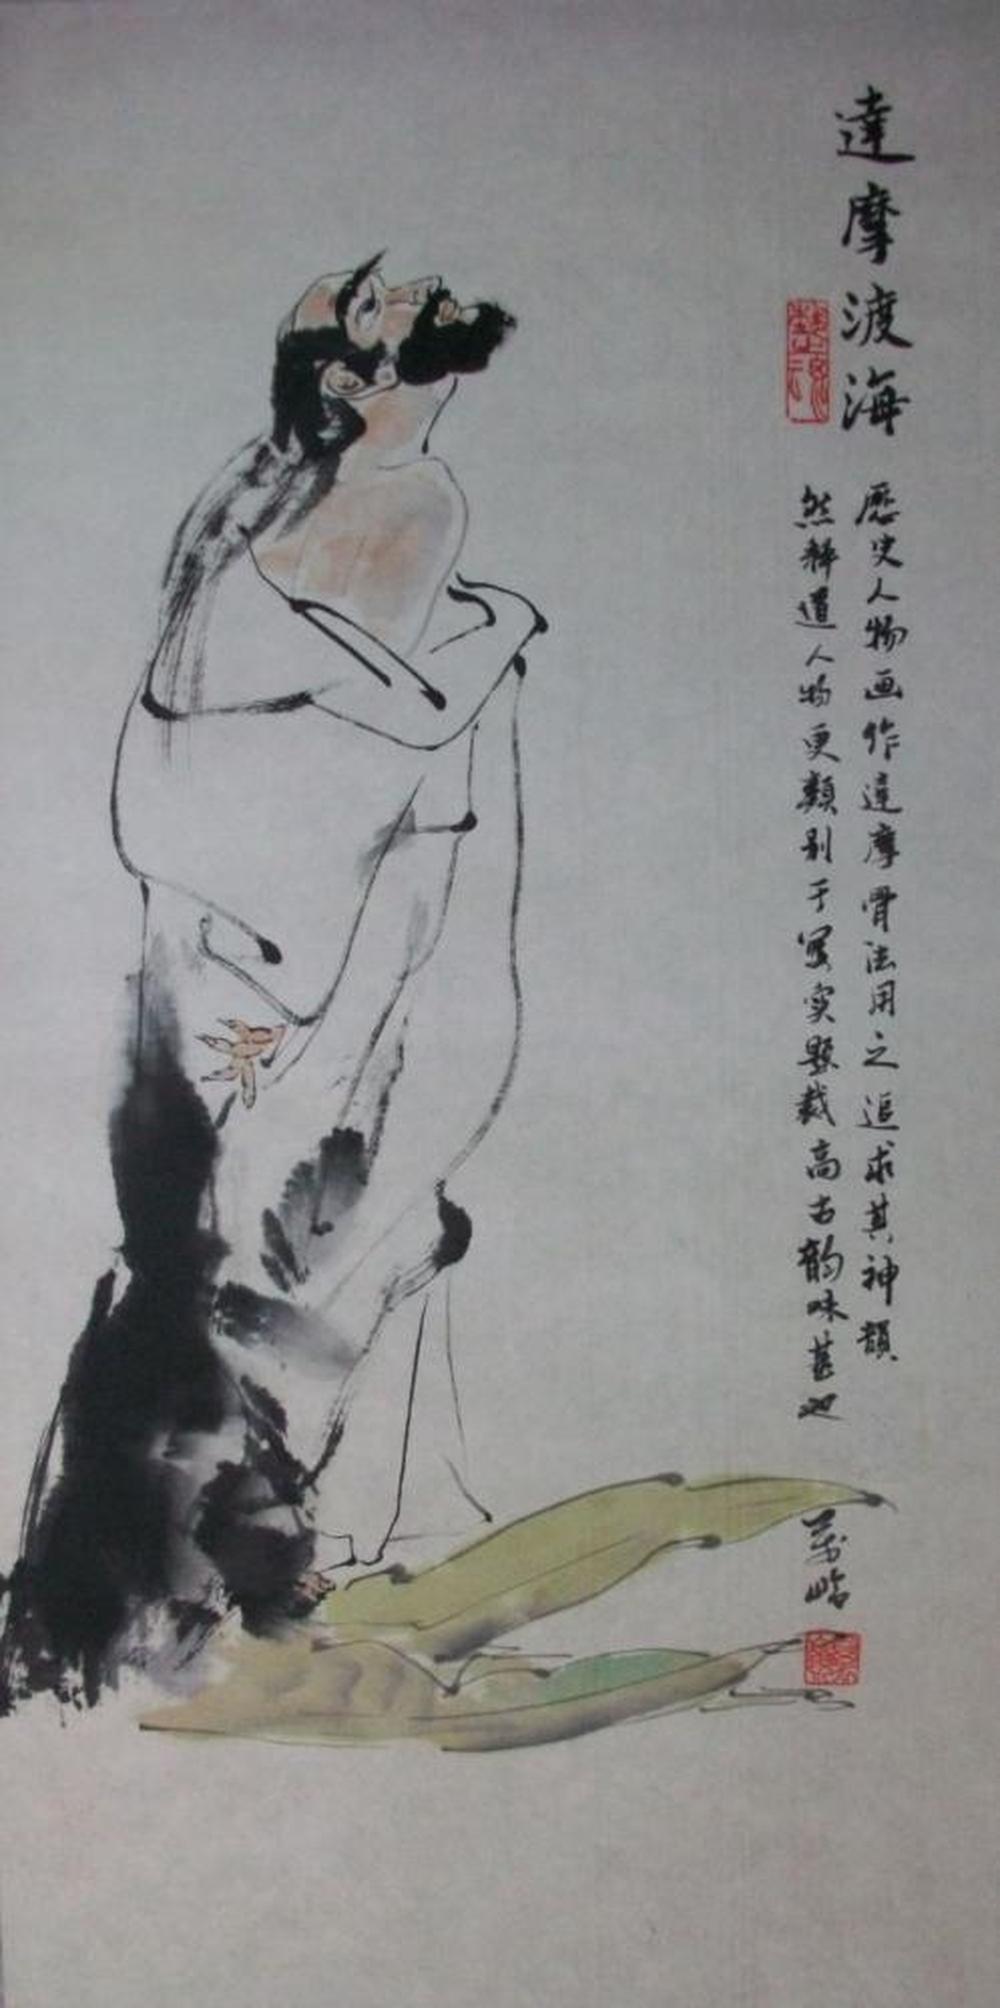 達摩渡海
歷史人物画作達摩骨法用之追求其神韻
然釋道人物更類别于写实題裁高古韵味甚也